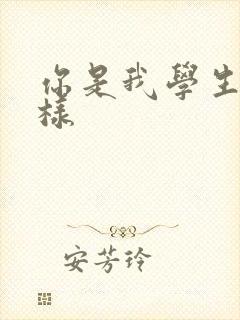 你是我學生
樣
安芳玲